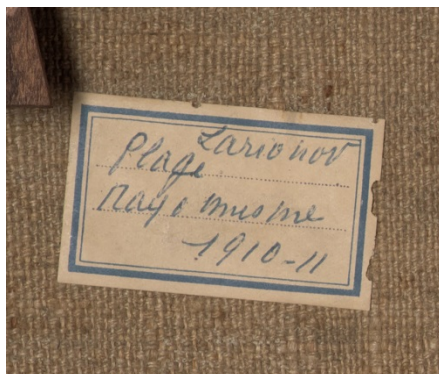 Larionov
Plage
Rayonnisme
1910-11